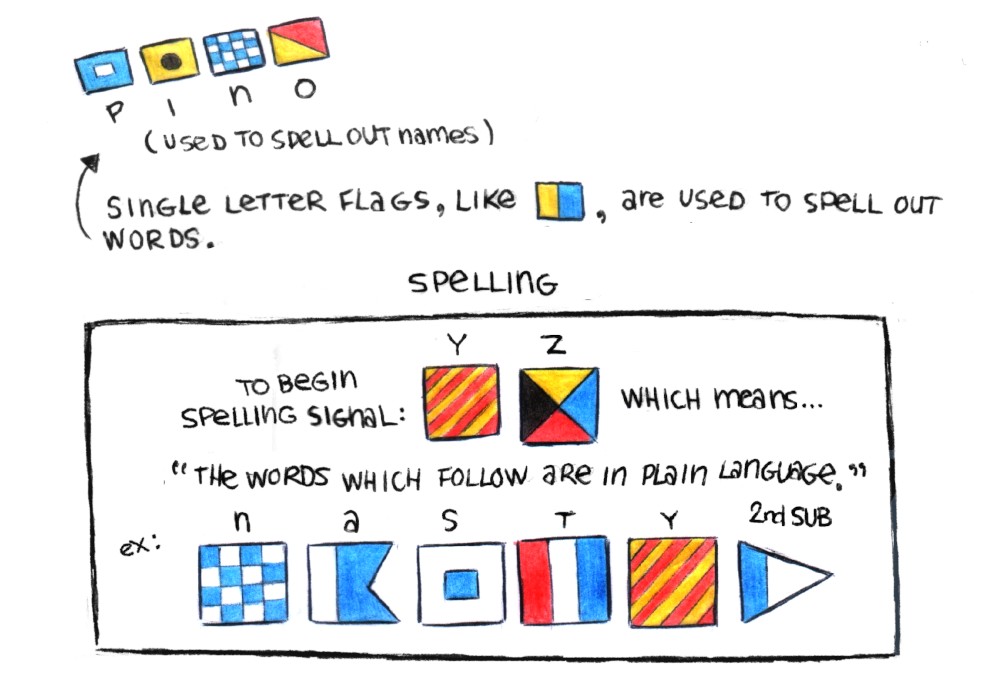 P I n O
(USED TO SPELL OUT names)
SINGLE LETTER FLAGS, LIKE , are USED TO SPELL OUT
WORDS.
SPELLING
Y Z
TO BEGIN
SPELLING SIGNAL:
WHICH means...
"THE WORDS WHICH FOLLOW are in PLain Language."
ex:
n a S T Y 2nd SUB